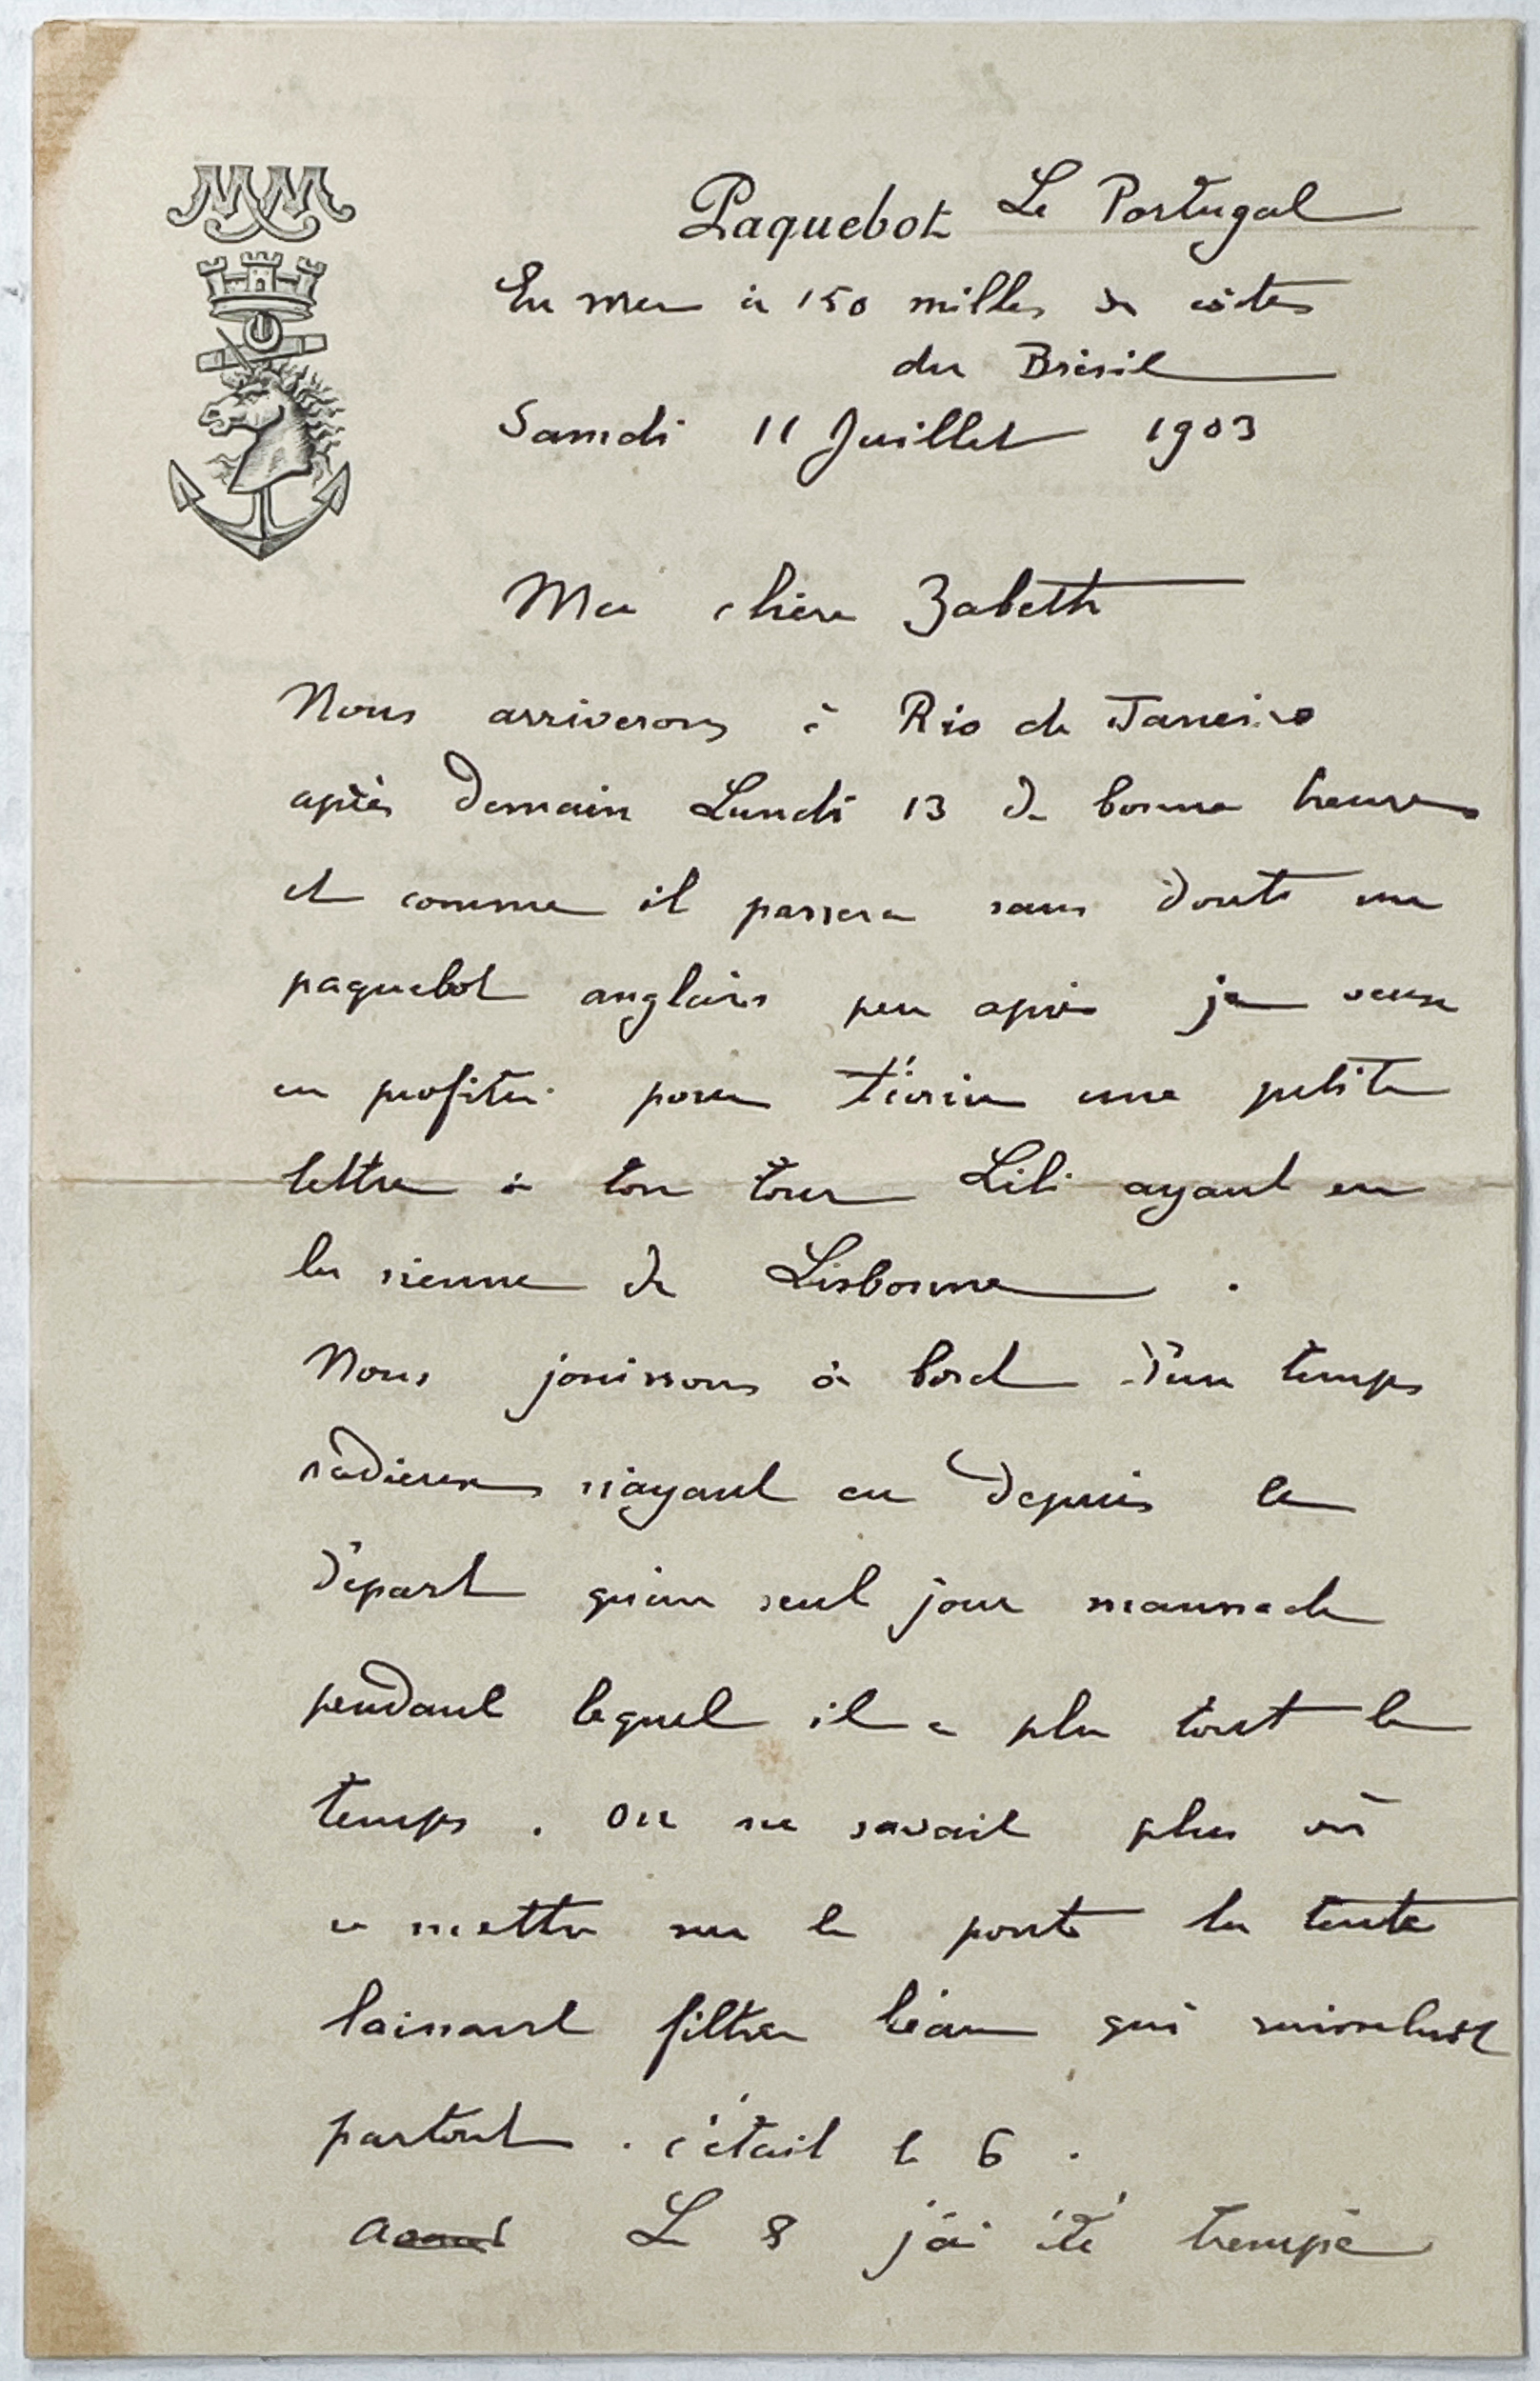 MM
Paquebot Le Portugal
En mer à 150 milles des côtes
du Brésil
Samedi 11 Juillet 1903
Ma chère Zabeth
Nous arriverons à Rio de Janeiro
après demain Lundi 13 de bonne heure
et comme il passera sans doute un
paquebot anglais peu après je veux
en profiter pour t'écrire une petite
lettre à ton tour Lili ayant eu
la sienne de Lisbonne .
Nous jouissons à bord d'un temps
radieux n'ayant eu depuis le
départ qu'un seul jour maussade
pendant lequel il a plu tout le
temps . On ne savait plus où
se mettre sur le pont la tente
laissant filtrer l'eau qui
partout . c'était le 6 .
Le 8 j'ai été trempé